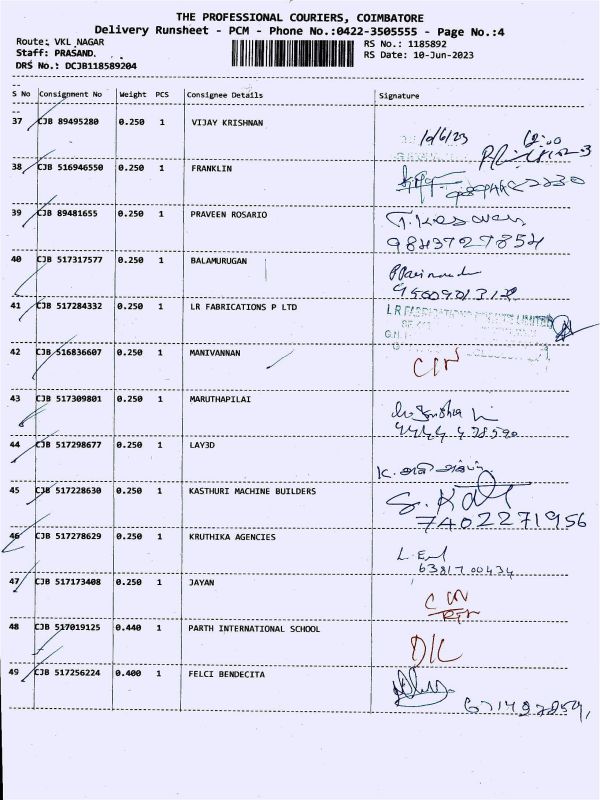 THE PROFESSIONAL COURIERS, COIMBATORE
Delivery Runsheet - PCM - Phone No.:0422-3505555 - Page No.:4
Route: VKL NAGAR RS No.: 1185892
Staff: PRASAND. RS Date: 10-Jun-2023
DRS No.: DCJB118589204
S No Consignment No Weight PCS Consignee Details Signature
37 CJB 89495280 0.250 1 VIJAY KRISHNAN
10/6/23
38 CJB 516946550 0.250 1 FRANKLIN
39 CJB 89481655 0.250 1 PRAVEEN ROSARIO
9843727854
40 CJB 517317577 0.250 1 BALAMURUGAN
41 CJB 517284332 0.250 1 LR FABRICATIONS P LTD
LR FABRICATIONS PRIVATE LIMITED
42 CJB 516836607 0.250 1 MANIVANNAN
CIN
43 CJB 517309801 0.250 1 MARUTHAPILAI
44 CJB 517298677 0.250 1 LAY3D
45 CJB 517228630 0.250 1 KASTHURI MACHINE BUILDERS
7402271956
46 CJB 517278629 0.250 1 KRUTHIKA AGENCIES
63817 00434
47 CJB 517173408 0.250 1 JAYAN
CIN
48 CJB 517019125 0.440 1 PARTH INTERNATIONAL SCHOOL
D/L
49 CJB 517256224 0.400 1 FELCI BENDECITA